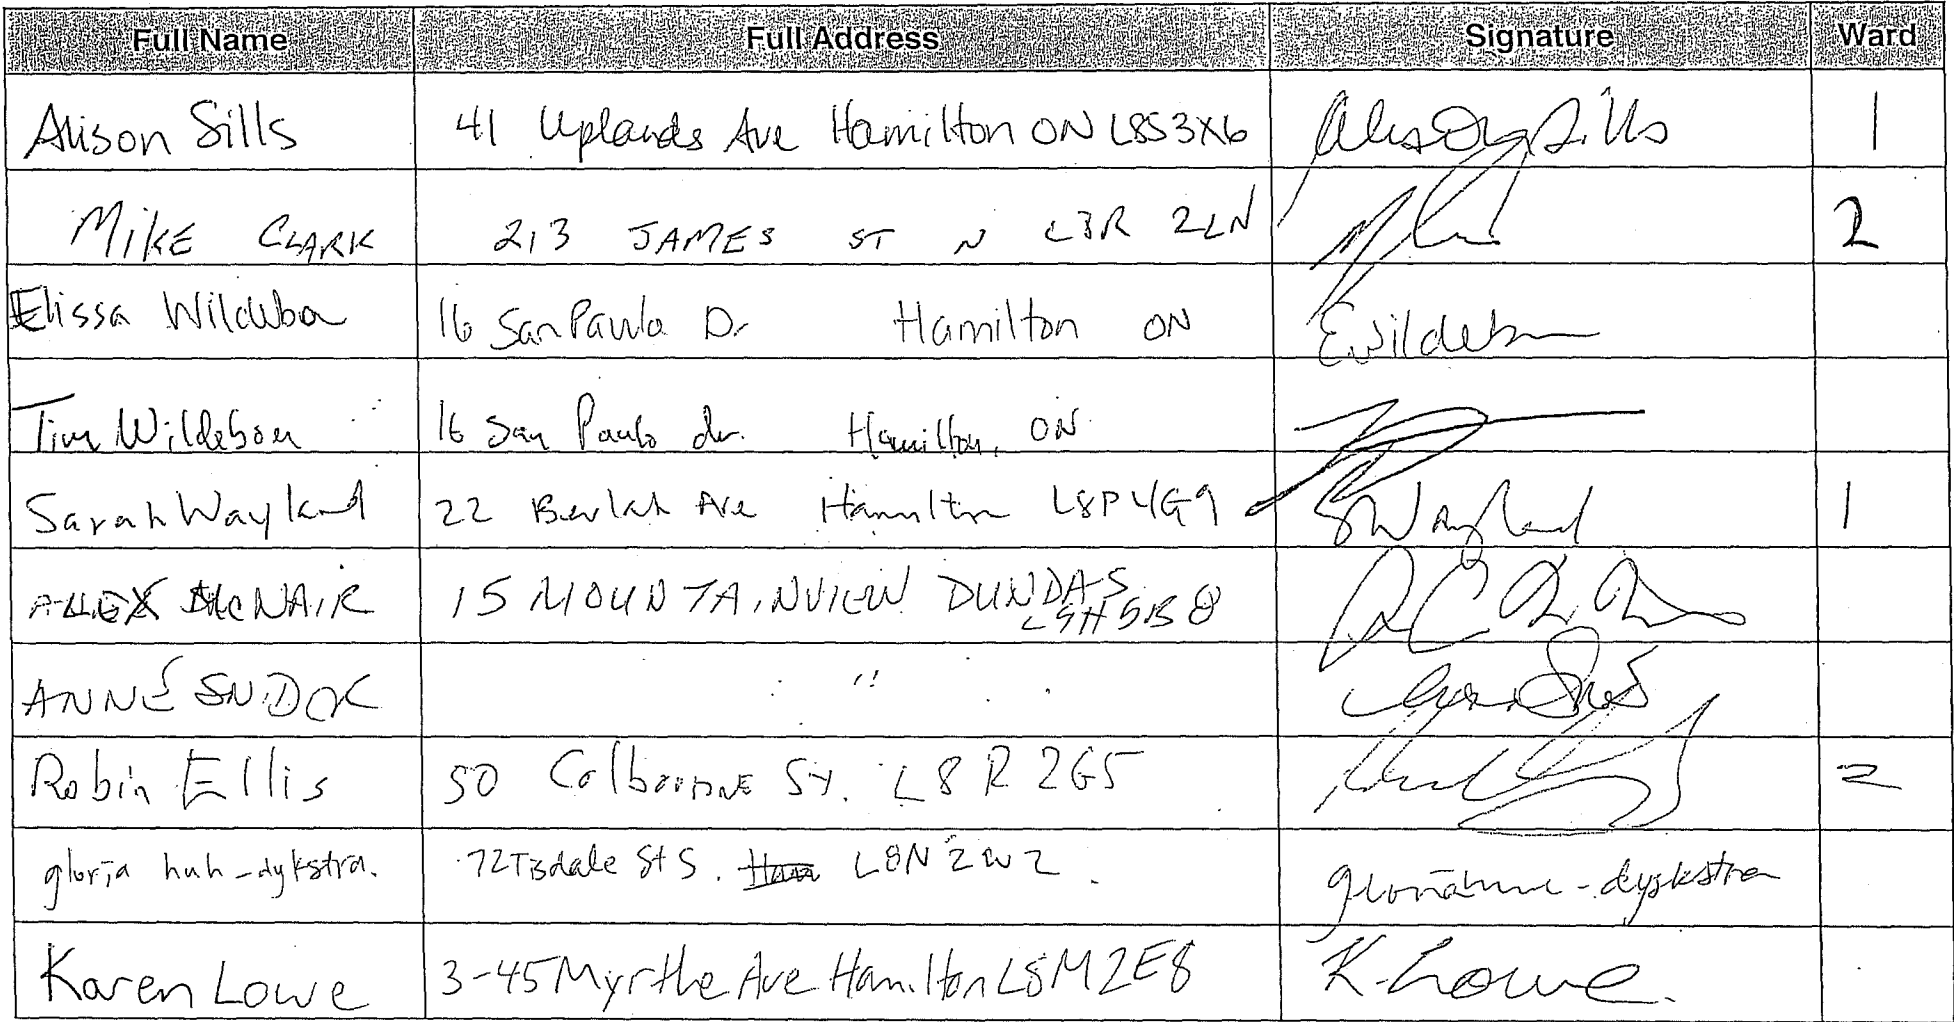 Full Name Full Address Signature Ward
Alison Sills 41 Uplands Ave Hamilton ON L8S3X6 Sills 1
MIKE CLARK 213 JAMES ST N L8R 2LN 2
Elissa Wildeboer 16 San Paulo Dr Hamilton ON EWildeboer
Tim Wildeboer 16 San Paulo dr. Hamilton, ON
Sarah Wayland 22 Beulah Ave Hamilton L8P4G9 SWayland 1
ALEX McNAIR 15 MOUNTAINVIEW DUNDAS
L9H5B8
ANNE "
Robin Ellis 50 Colbourne St. L8R 2G5 2
gloria huh-dykstra. 72 Tisdale St S. L8N 2W2 gloria huh-dykstra
Karen Lowe 3-45 Myrthe Ave Hamilton L8M2E8 K. Lowe.